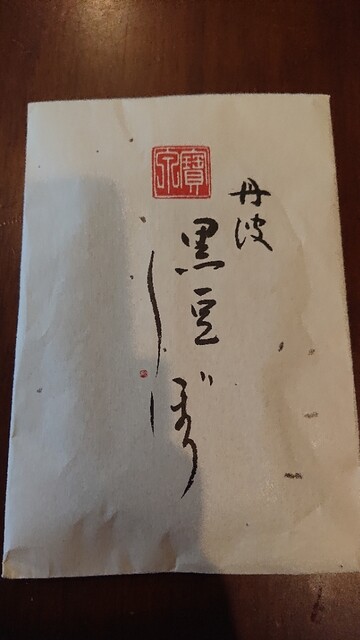 寶
丹波
黒豆
しぼり